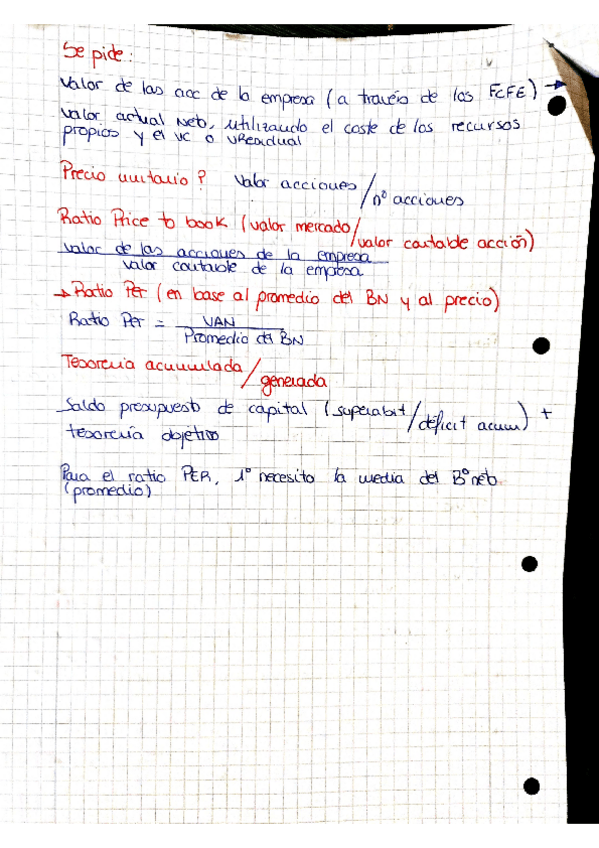 Se pide:
Valor de las acc de la empresa (a través de los FCFE) →
Valor actual Neto, utilizando el coste de los recursos
propios y el VC o VResidual
Precio unitario? Valor acciones/nº acciones
Ratio Price to book (valor mercado/valor contable acción)
Valor de las acciones de la empresa
Valor contable de la empresa
→ Ratio Per (en base al promedio del BN y al precio)
Ratio Per = VAN
Promedio del BN
Tesorería acumulada/generada
Saldo presupuesto de capital (superabit/déficit acum) +
tesorería objetivo
Para el ratio PER, 1º necesito la media del Bº neto
(promedio)